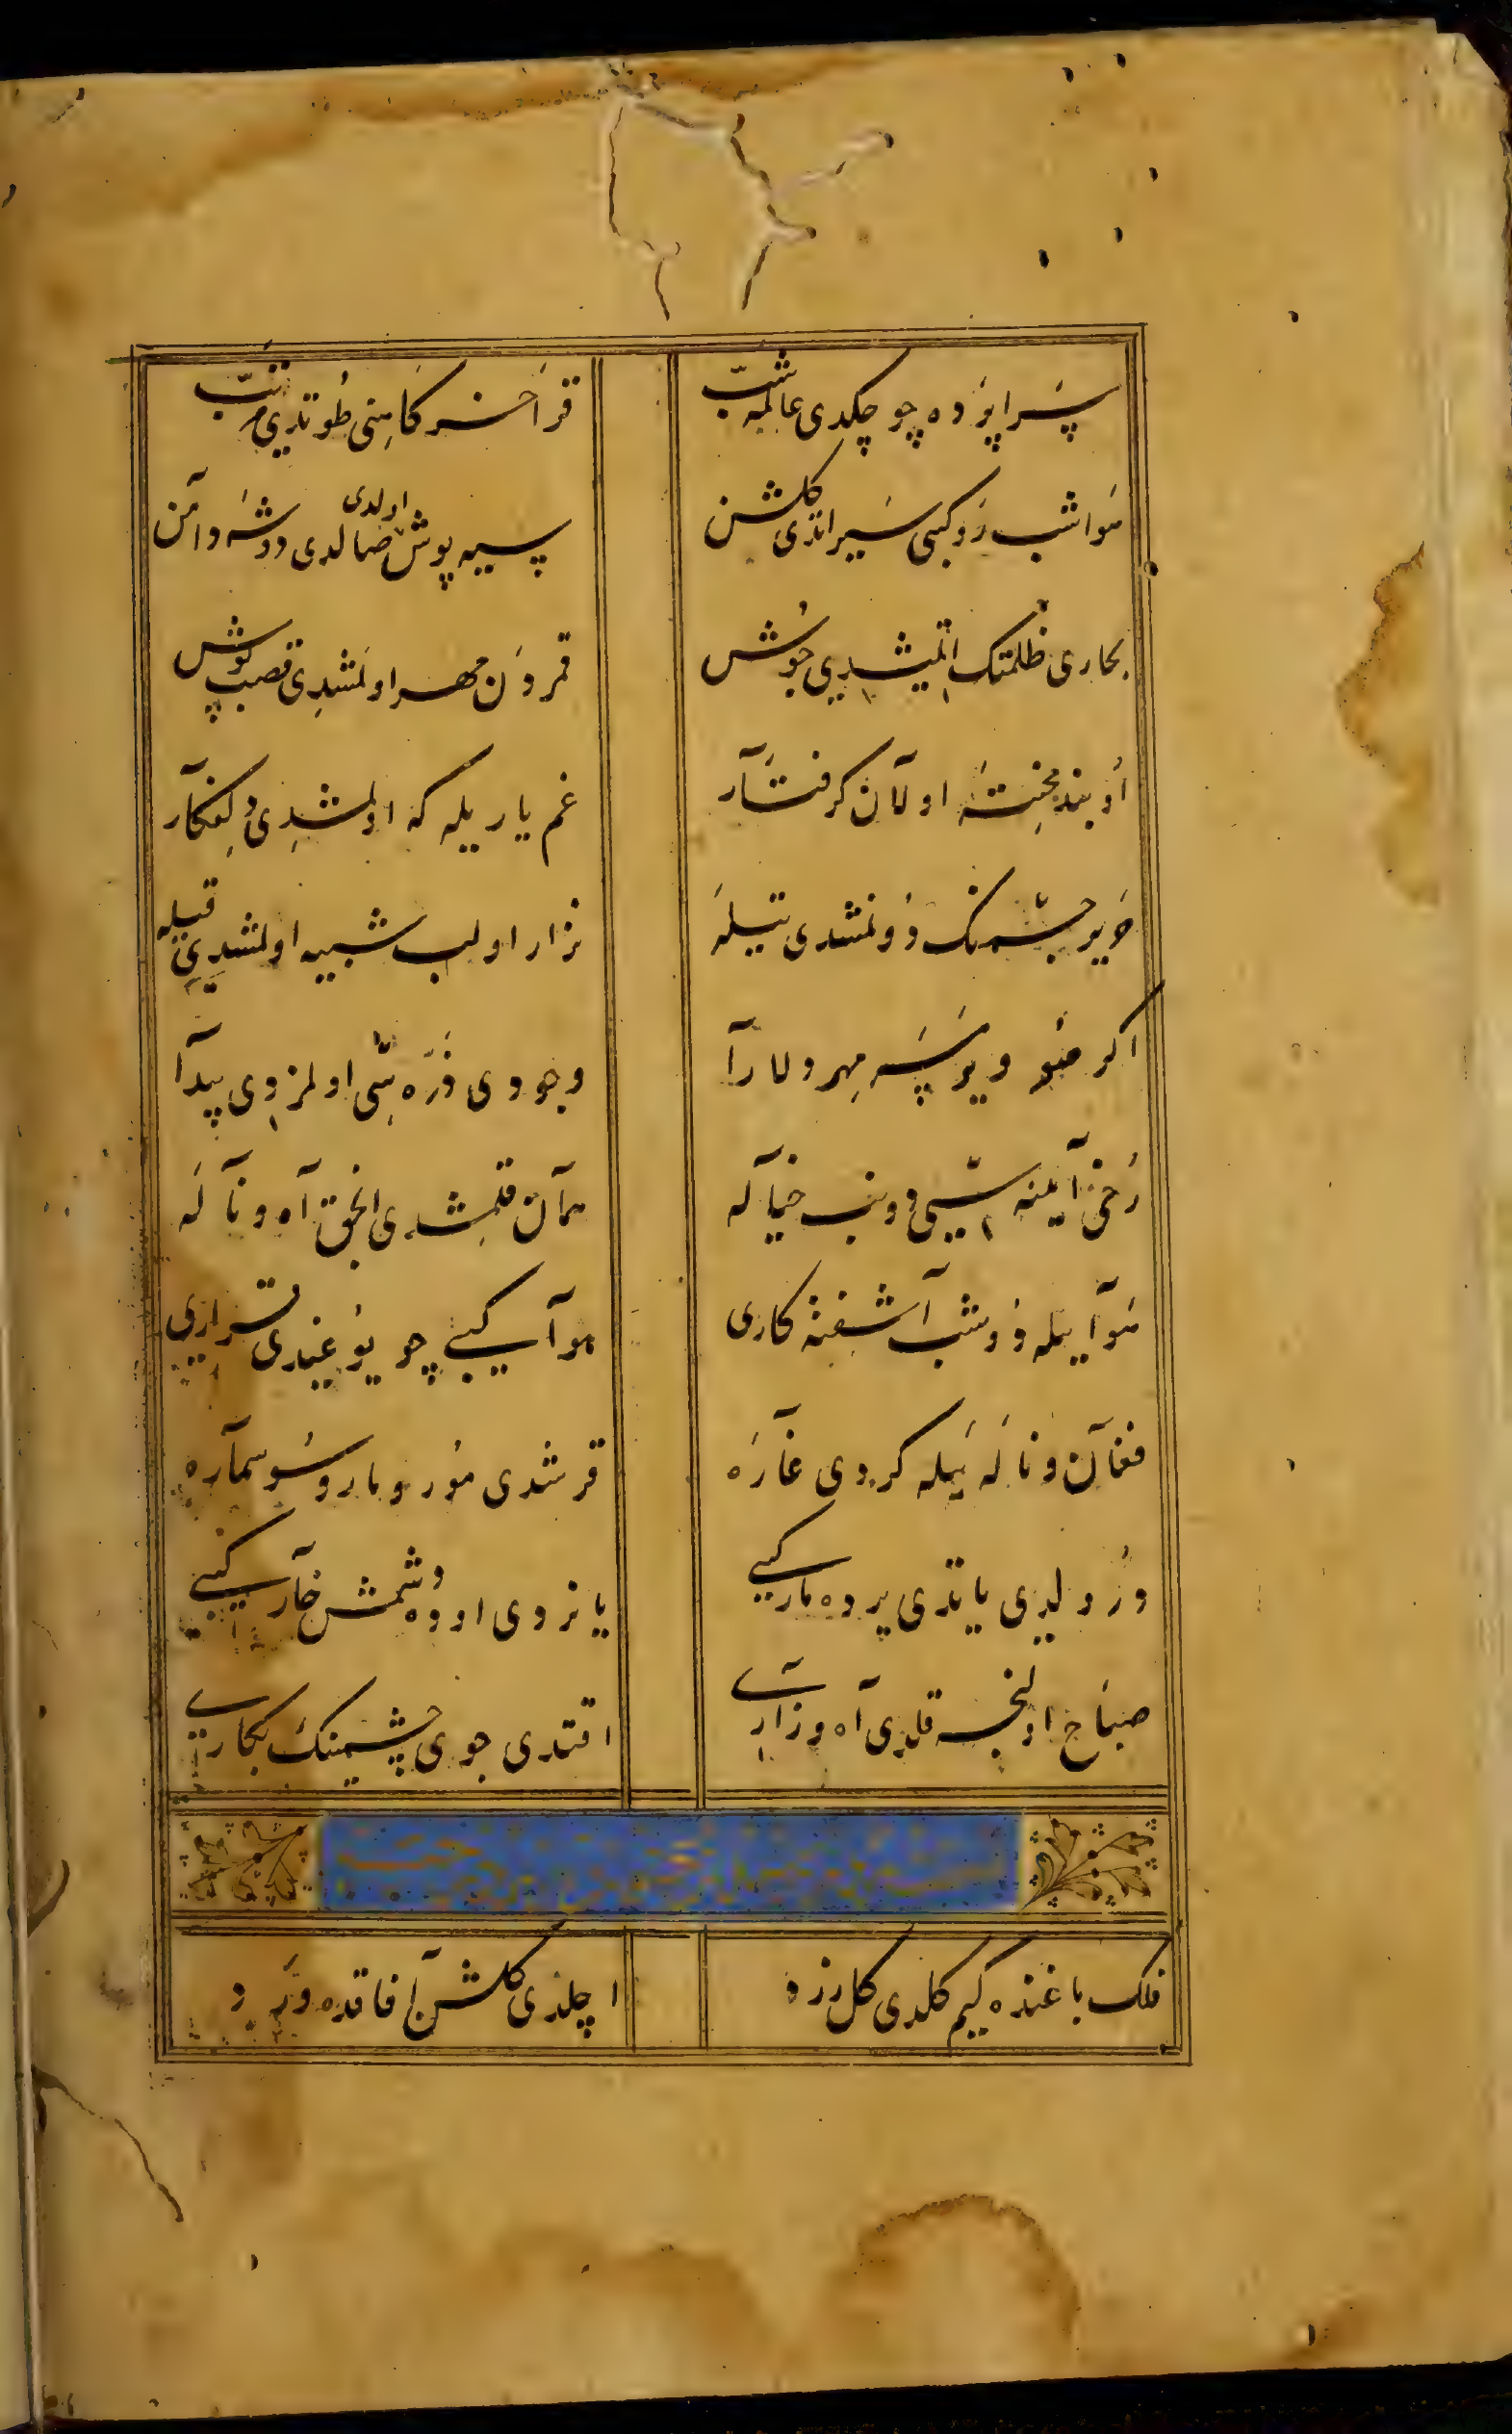 سراپرده چو چکدی عالمه شب
قرا خرکاهنی طوتدی مرتب
هوا شب رو کبی سیر اتدی کلشن
سیه پوش اولدی صالدی دوشه دامن
بحاری ظلمتک اتمیشدی جوش
قمردن مهر اولمشدی قصب پوش
او بند محنته اولان کرفتار
غم یاریله که اولمشدی دلفکار
خریر چشمنک دونمشدی نیله
نزار اولب شبیه اولمشدی قیله
اکر ضو ویرسه مهر دلارا
وجودی ذره سی اولمزدی پیدا
رخی آیینه سی دونب خیاله
همان قلمشدی الحق آه و ناله
هوا ایله دوشب آشفته کاری
هوا کبی چو یوغیدی قراری
فغان و ناله یله کردی غاره
قرشدی مور و مار و سوسماره
دورولدی یاتدی یرده مار کبی
یانردی اوده دوشمش خار کبی
صباح اولنجه قلدی آه و زاری
اقتدی جوی چشمینک بکاری
فلک باغنده کیم کلدی کل زرد
اچلدی کلشن آفاقده ورد